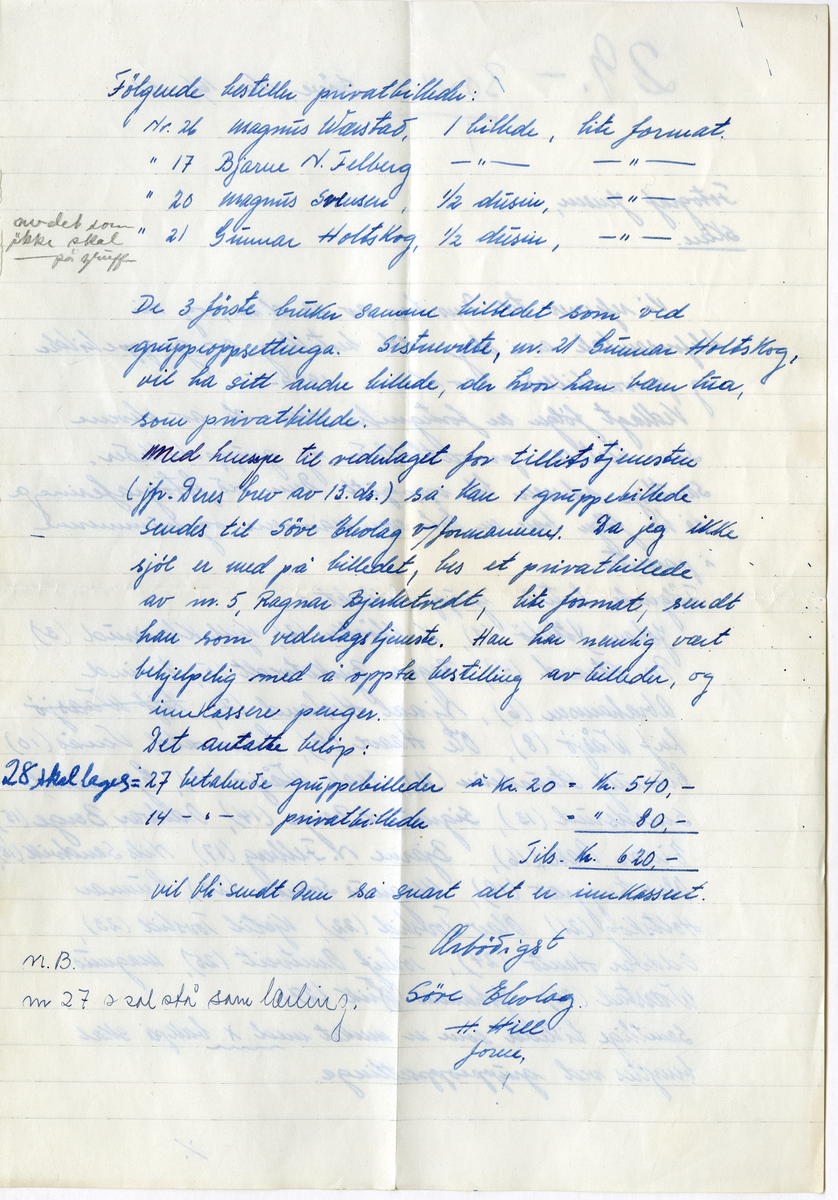 Følgende bestiller privatbilleder:
Nr. 26 Magnus Wærstad, 1 billede, lite format.
" 17 Bjarne N. Felberg —"— —"—
" 20 Magnus Svensen, 1/2 dusin, —"—
av det som
ikke skal
på gruff
" 21 Gunnar Holtskog, 1/2 dusin, —"—
De 3 første bruker samme billedet som ved
gruppeoppsettinga. Sistnevnte, nr. 21 Gunnar Holtskog,
vil ha sitt andre billede, der hvor han bærer lua,
som privatbillede.
Med hensyn til vederlaget for tillitstjenesten
(jfr. Deres brev av 13. ds.) så kan 1 gruppebillede
sendes til Söve Elvolag v/formannen. Da jeg ikke
sjöl er med på billedet, bes et privatbillede
av nr. 5, Ragnar Bjerketvedt, lite format, sendt
han som vederlagstjeneste. Han har nemlig vært
behjelpelig med å oppta bestilling av billeder, og
innkassere penger.
Det antatte belöp:
28 skal lages = 27 betalende gruppebilleder à Kr. 20 = Kr. 540,-
14 - " - privatbilleder = " 80,-
Tils. Kr. 620,-
vil bli sendt Dem så snart alt er innkassert.
Ærbödigst
N.B.
nr 27 skal stå som lærling.
Söve Elvolag
H. Hill
form.